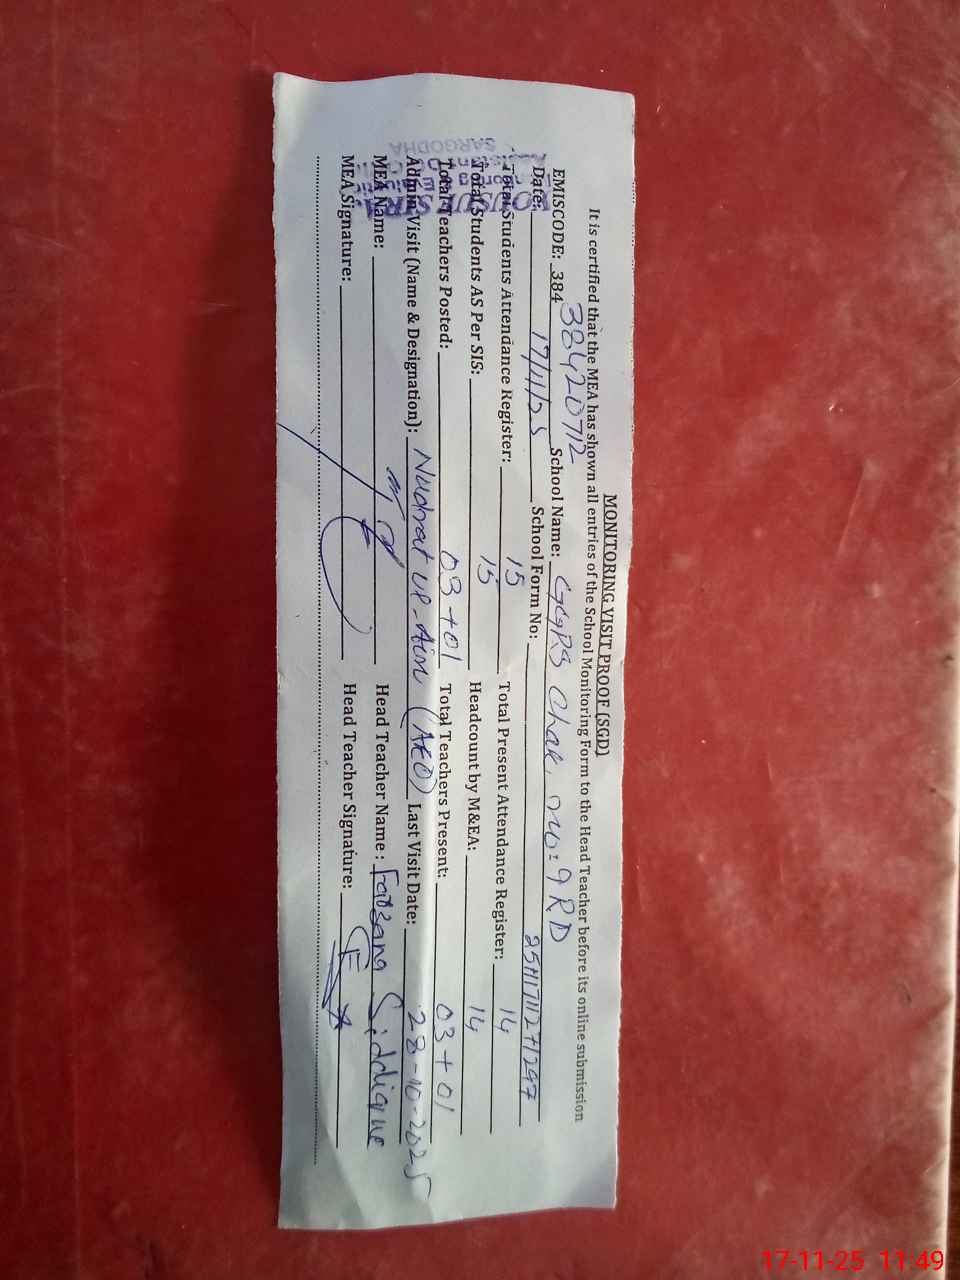 MONITORING VISIT PROOF (SGD)
It is certified that the MEA has shown all entries of the School Monitoring Form to the Head Teacher before its online submission
EMISCODE: 384 38420712 School Name: GGPS Chak no: 9 RD
Date: 17/11/25 School Form No:
Total Students Attendance Register: 15 Total Present Attendance Register: 14
Total Students AS Per SIS: 15 Headcount by M&EA: 14
Total Teachers Posted: 03+01 Total Teachers Present: 03+01
Admin Visit (Name & Designation): Nudrat ul-Ain (AEO) Last Visit Date: 28-10-2025
MEA Name: Head Teacher Name: Farzana Siddique
MEA Signature: Head Teacher Signature:
SARGODHA
17-11-25 11:49